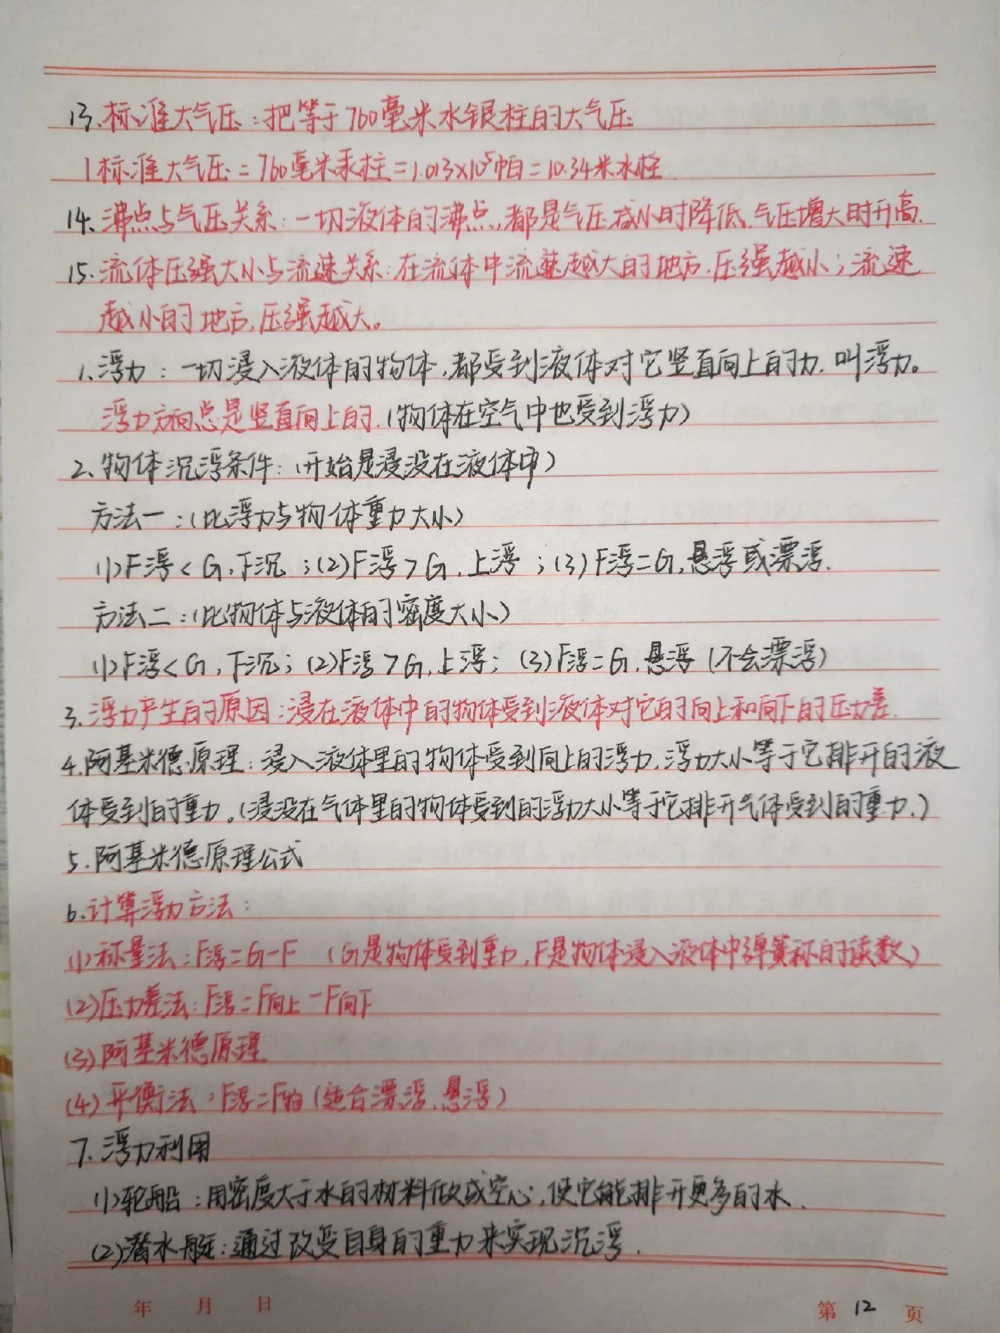 13.标准大气压:把等于760毫米水银柱的大气压
1标准大气压=760毫米汞柱=1.013×10⁵帕=10.34米水柱
14.沸点与气压关系:一切液体的沸点,都是气压减小时降低,气压增大时升高.
15.流体压强大小与流速关系:在流体中流速越大的地方,压强越小;流速
越小的地方,压强越大。
1.浮力:一切浸入液体的物体,都受到液体对它竖直向上的力,叫浮力。
浮力方向总是竖直向上的.(物体在空气中也受到浮力)
2.物体沉浮条件:(开始是浸没在液体中)
方法一:(比浮力与物体重力大小)
(1)F浮<G,下沉;(2)F浮>G,上浮;(3)F浮=G,悬浮或漂浮.
方法二:(比物体与液体的密度大小)
(1)F浮<G,下沉;(2)F浮>G,上浮;(3)F浮=G,悬浮(不会漂浮)
3.浮力产生的原因:浸在液体中的物体受到液体对它的向上和向下的压力差.
4.阿基米德原理:浸入液体里的物体受到向上的浮力,浮力大小等于它排开的液
体受到的重力.(浸没在气体里的物体受到的浮力大小等于它排开气体受到的重力.)
5.阿基米德原理公式
6.计算浮力方法:
(1)称量法:F浮=G-F (G是物体受到重力,F是物体浸入液体中弹簧称的读数)
(2)压力差法:F浮=F向上-F向下
(3)阿基米德原理
(4)平衡法:F浮=F物(适合漂浮.悬浮)
7.浮力利用
(1)轮船:用密度大于水的材料做成空心,使它能排开更多的水.
(2)潜水艇:通过改变自身的重力来实现沉浮.
年 月 日 第 12 页